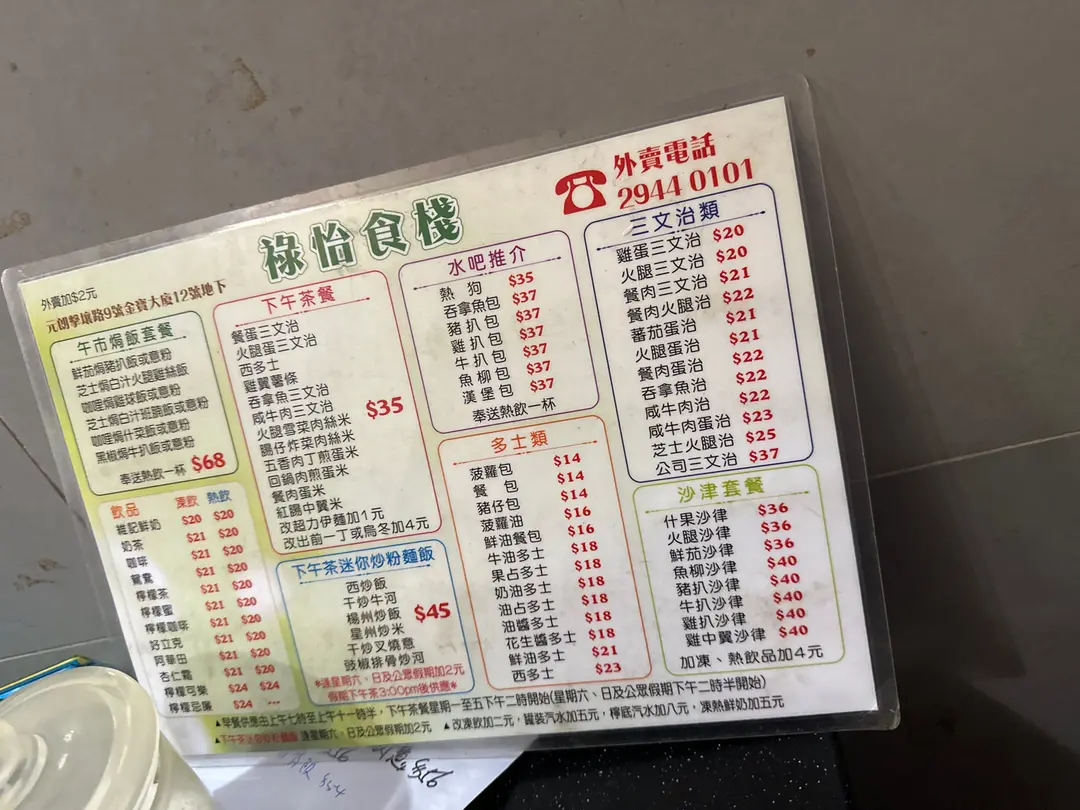 外賣電話
2944 0101
祿怡食棧
外賣加$2元
元朗擊壤路9號金寶大廈12號地下
午市焗飯套餐
鮮茄焗豬扒飯或意粉
芝士焗白汁火腿雞絲飯
咖喱焗雞球飯或意粉
芝士焗白汁班腩飯或意粉
咖喱焗什菜飯或意粉
黑椒焗牛扒飯或意粉
奉送熱飲一杯 $68
飲品 凍飲 熱飲
維記鮮奶 $20 $20
奶茶 $21 $20
咖啡 $21 $20
鴛鴦 $21 $20
檸檬茶 $21 $20
檸檬蜜 $21 $20
檸檬咖啡 $21 $20
好立克 $21 $20
阿華田 $21 $20
杏仁霜 $21 $20
檸檬可樂 $24 $24
檸檬忌廉 $24 ---
下午茶餐
餐蛋三文治
火腿蛋三文治
西多士
雞翼薯條
吞拿魚三文治
咸牛肉三文治
火腿雪菜肉絲米
腸仔炸菜肉絲米
五香肉丁煎蛋米
回鍋肉煎蛋米
餐肉蛋米
紅腸中翼米
$35
改超力伊麵加1元
改出前一丁或烏冬加4元
下午茶迷你炒粉麵飯
西炒飯
干炒牛河
楊州炒飯
星州炒米
干炒叉燒意
豉椒排骨炒河
$45
*逢星期六、日及公眾假期加2元
假期下午茶3:00pm後供應*
水吧推介
熱狗 $35
吞拿魚包 $37
豬扒包 $37
雞扒包 $37
牛扒包 $37
魚柳包 $37
漢堡包 $37
奉送熱飲一杯
多士類
菠蘿包 $14
餐包 $14
豬仔包 $14
菠蘿油 $16
鮮油餐包 $16
牛油多士 $18
果占多士 $18
奶油多士 $18
油占多士 $18
油醬多士 $18
花生醬多士 $18
鮮油多士 $21
西多士 $23
三文治類
雞蛋三文治 $20
火腿三文治 $20
餐肉三文治 $21
餐肉火腿治 $22
蕃茄蛋治 $21
火腿蛋治 $21
餐肉蛋治 $22
吞拿魚治 $22
咸牛肉治 $22
咸牛肉蛋治 $23
芝士火腿治 $25
公司三文治 $37
沙津套餐
什果沙律 $36
火腿沙律 $36
鮮茄沙律 $36
魚柳沙律 $40
豬扒沙律 $40
牛扒沙律 $40
雞扒沙律 $40
雞中翼沙律 $40
加凍、熱飲品加4元
▲早餐供應由上午七時至上午十一時半，下午茶餐星期一至五下午二時開始(星期六、日及公眾假期下午二時半開始)
▲下午茶迷你炒粉麵飯 逢星期六、日及公眾假期加2元 ▲改凍飲加二元，罐裝汽水加五元，檸底汽水加八元，凍熱鮮奶加五元
$54
$56